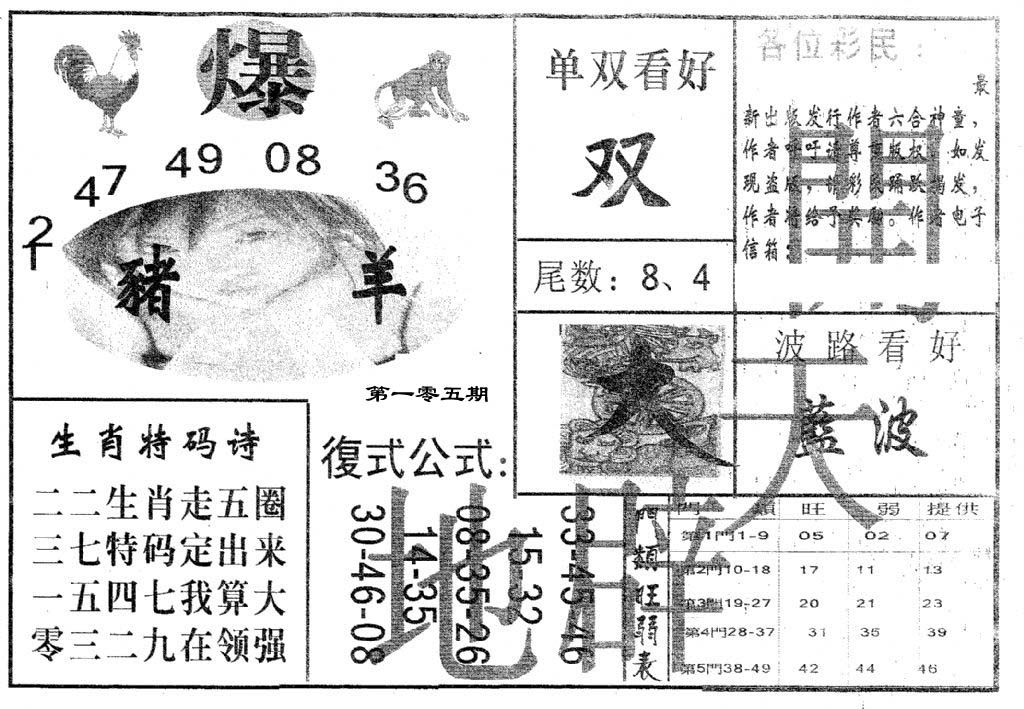 爆
21 47 49 08 36
豬 羊
第一零五期
单双看好
双
尾数：8、4
各位彩民：
最
新出版发行作者六合神童，
作者呼吁请尊重版权。如发
现盗版，请彩民踊跃揭发，
作者将给予奖励。作者电子
信箱：
波路看好
藍波
生肖特码诗
二二生肖走五圈
三七特码定出来
一五四七我算大
零三二九在领强
復式公式：
33-45-46
15-32
08-35-26
14-35
30-46-08
門類旺弱表
門類 旺 弱 提供
第1門1-9 05 02 07
第2門10-18 17 11 13
第3門19-27 20 21 23
第4門28-37 31 35 39
第5門38-49 42 44 46
天
地